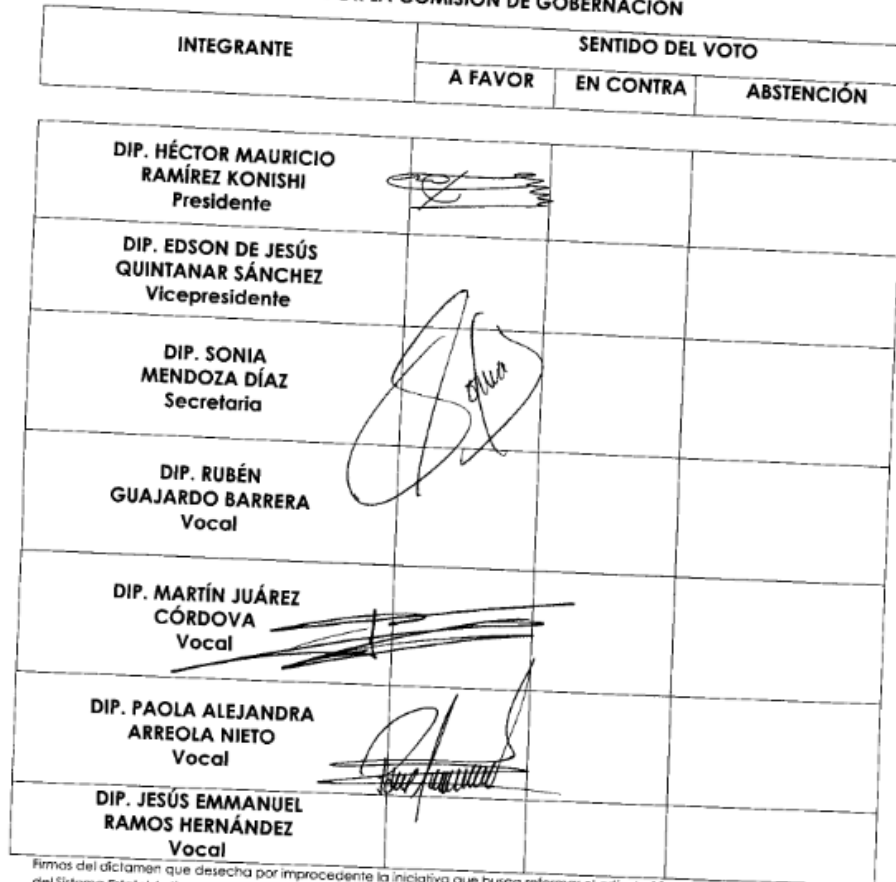 COMISIÓN DE GOBERNACIÓN
INTEGRANTE
SENTIDO DEL VOTO
A FAVOR
EN CONTRA
ABSTENCIÓN
DIP. HÉCTOR MAURICIO
RAMÍREZ KONISHI
Presidente
DIP. EDSON DE JESÚS
QUINTANAR SÁNCHEZ
Vicepresidente
DIP. SONIA
MENDOZA DÍAZ
Secretaria
DIP. RUBÉN
GUAJARDO BARRERA
Vocal
DIP. MARTÍN JUÁREZ
CÓRDOVA
Vocal
DIP. PAOLA ALEJANDRA
ARREOLA NIETO
Vocal
DIP. JESÚS EMMANUEL
RAMOS HERNÁNDEZ
Vocal
Firmas del dictamen que desecha por improcedente la iniciativa que busca